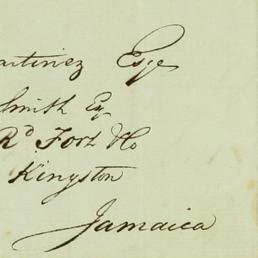 artinez Esqe
Smith Esq
Rd Fort Ho
Kingston
Jamaica